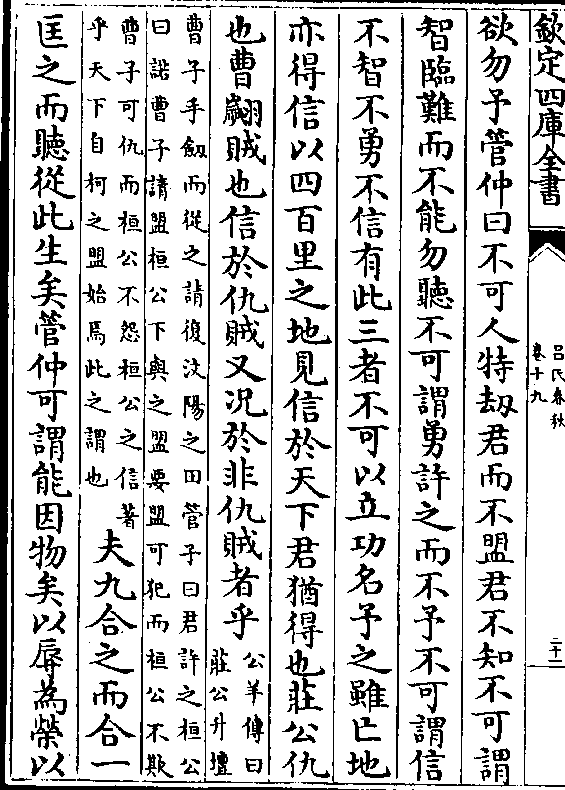 欽定四庫全書
呂氏春秋
卷十九
二十一
欲勿予管仲曰不可人特刼君而不盟君不知不可謂
智臨難而不能勿聽不可謂勇許之而不予不可謂信
不智不勇不信有此三者不可以立功名予之雖亡地
亦得信以四百里之地見信於天下君猶得也莊公仇
也曹翽賊也信於仇賊又况於非仇賊者乎
公羊傳曰
莊公升壇
曹子手劔而從之請復汶陽之田管子曰君許之桓公
曰諾曹子請盟桓公下與之盟要盟可犯而桓公不欺
曹子可仇而桓公不怨桓公之信著
乎天下自柯之盟始焉此之謂也
夫九合之而合一
匡之而聽從此生矣管仲可謂能因物矣以辱為榮以